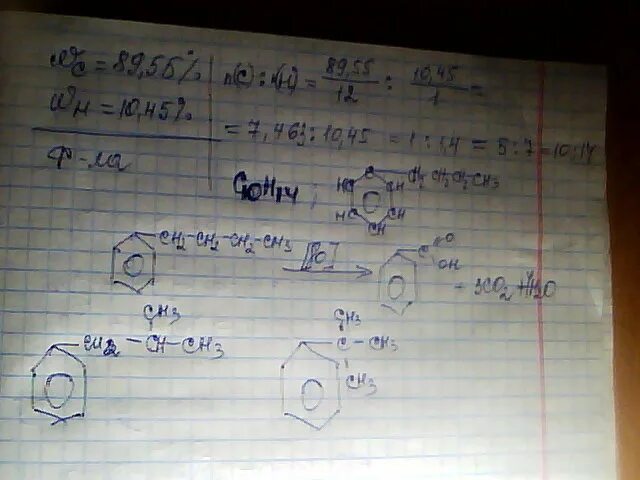 Wc = 89,55%
WH = 10,45%
Ф-ла
n(C) : n(H) = 89,55/12 : 10,45/1 =
= 7,463 : 10,45 = 1 : 1,4 = 5 : 7 = 10:14
C10H14 ;
C CH2 CH2 CH2 CH3
HC CH
H C CH
CH
CH2 – CH2 – CH2 – CH3
[O]
C O
OH
– 3CO2 + H2O
CH3
CH2 – CH – CH3
CH3
C – CH3
CH3